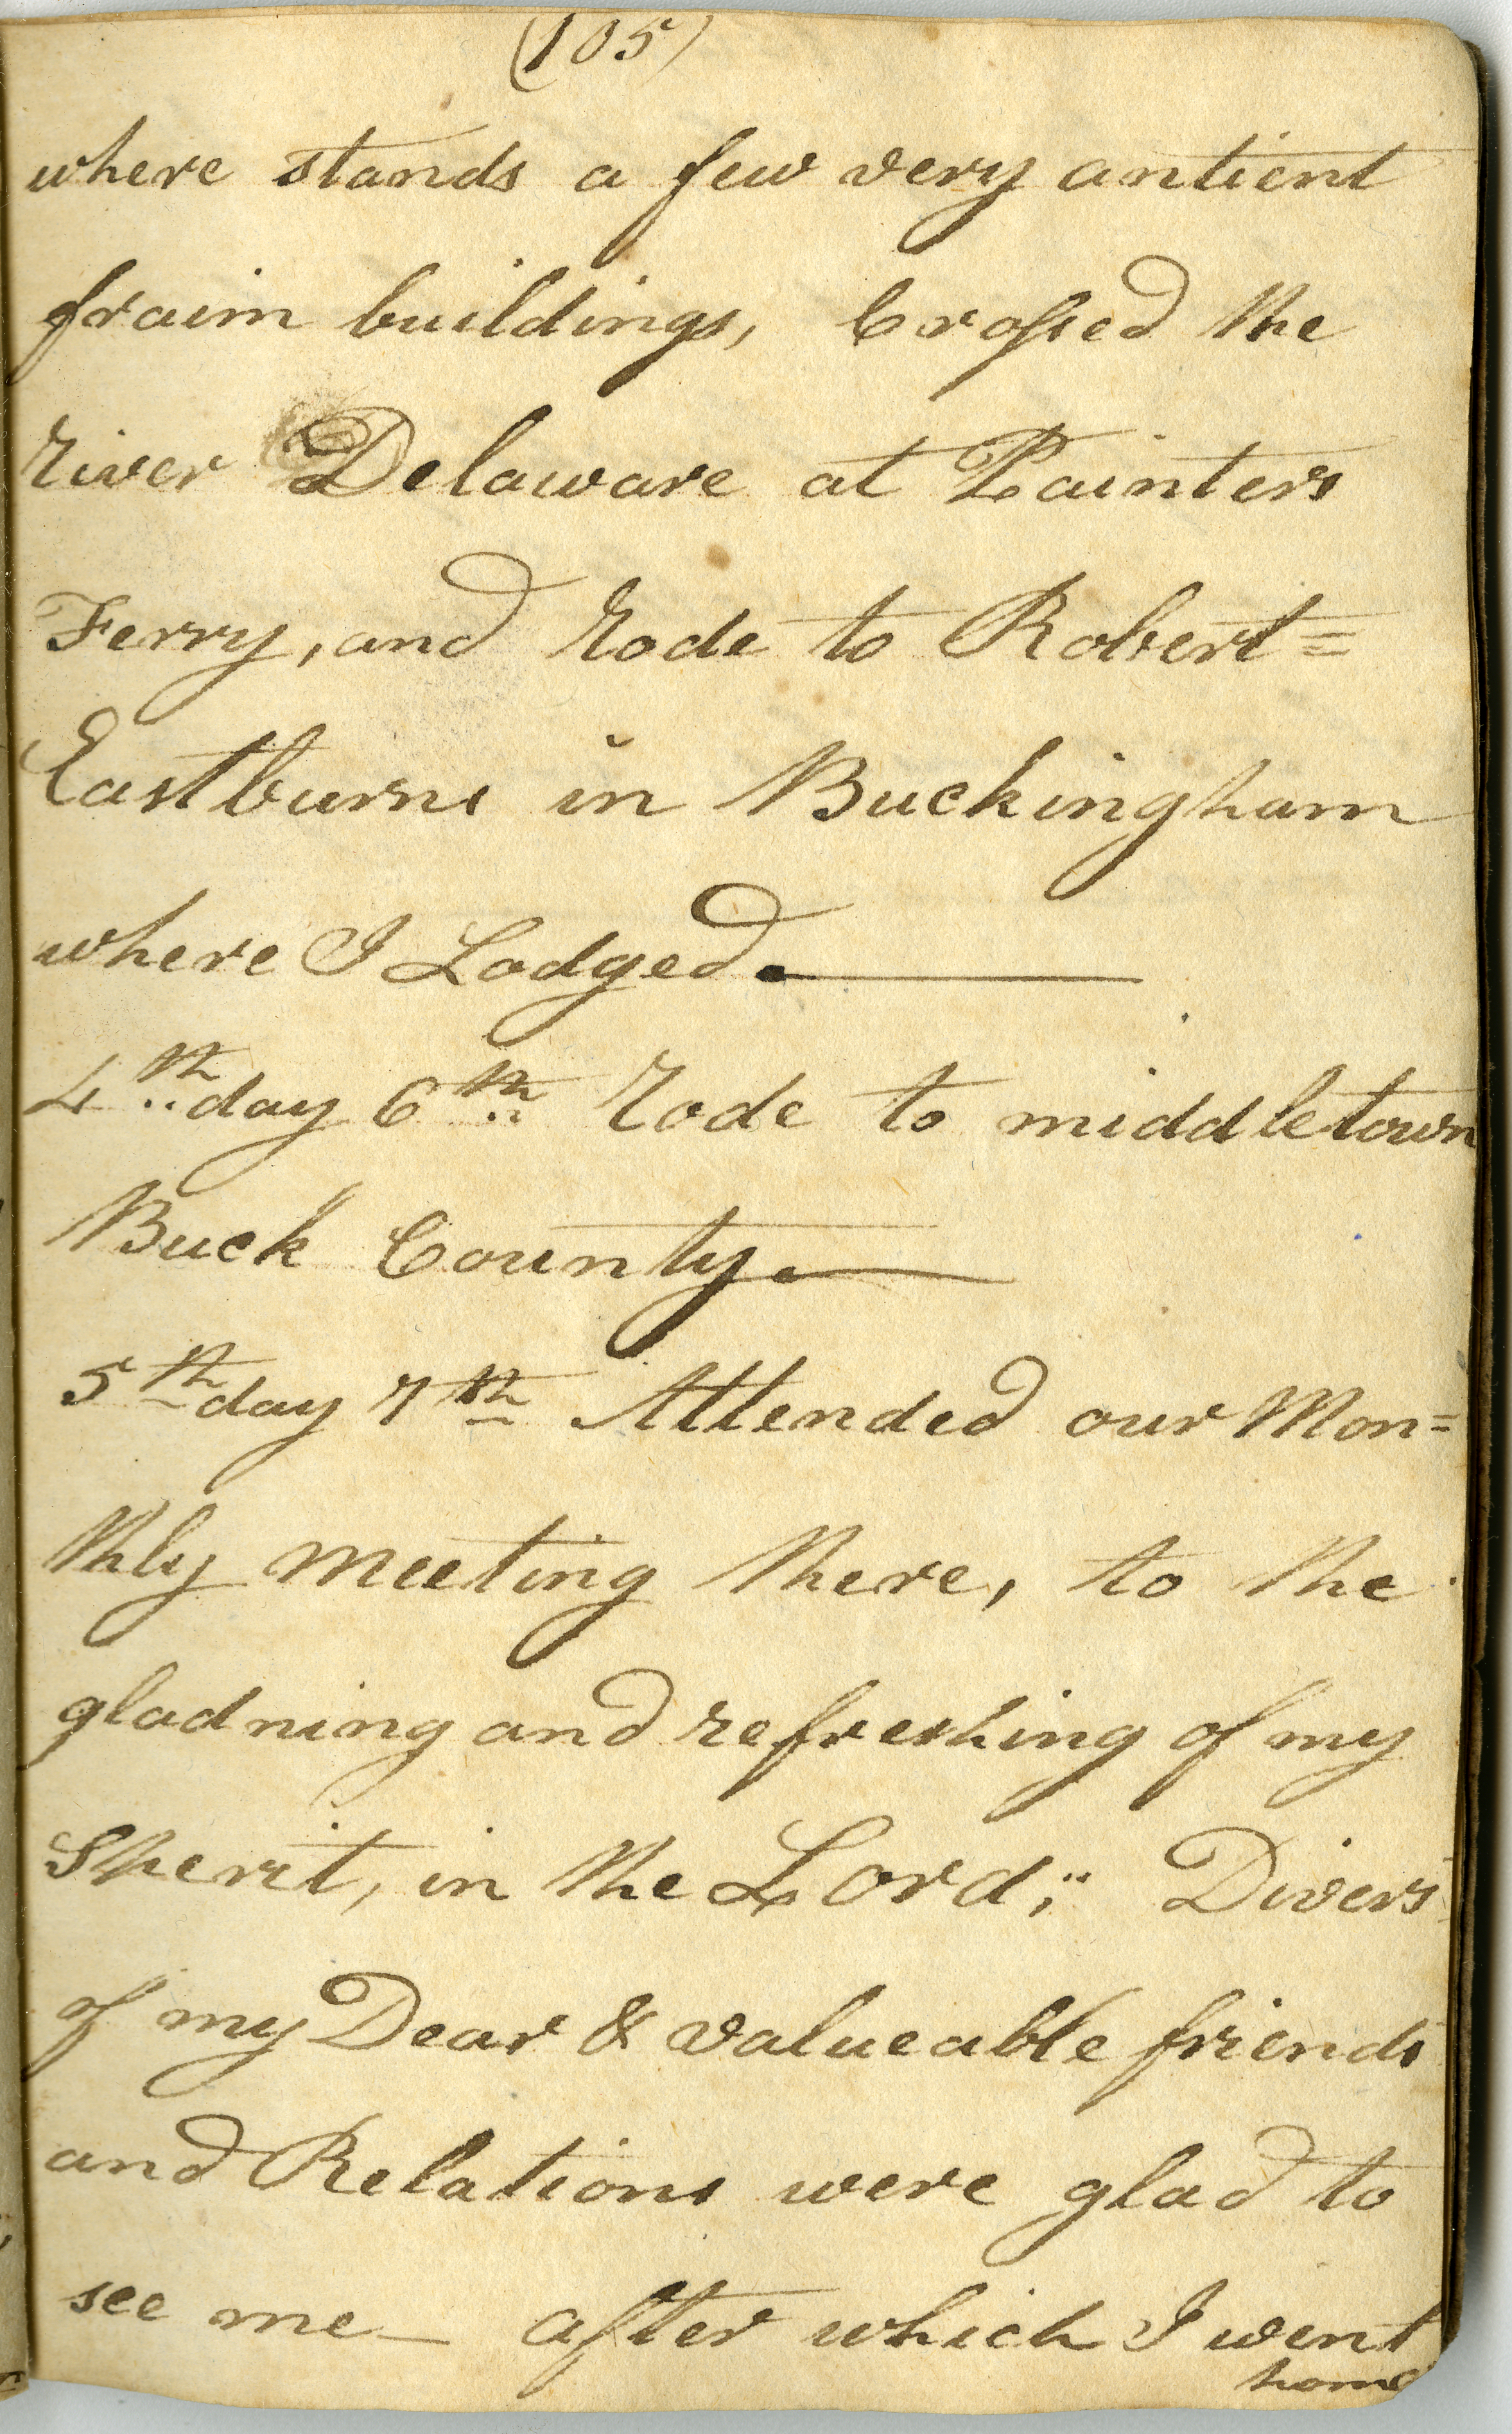 (105)
where stands a few very antient
fraim buildings, Crossed the
River Delaware at Painters
Ferry, and Rode to Robert=
Eastburns in Buckingham
where I Lodged.—
4th day 6th Rode to middletown
Buck County.—
5th day 7th Attended our Mon=
thly meeting there, to the
gladning and refreshing of my
Sperit, in the Lord; Divers
of my Dear & valueable friends
and Relations were glad to
see me— after which I went
home